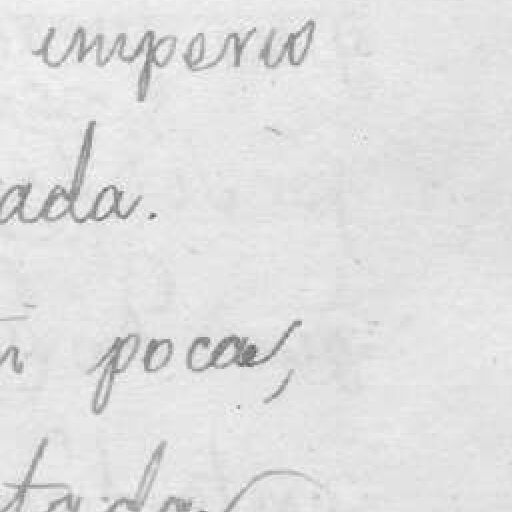 imperio
ada.
poca,
tada